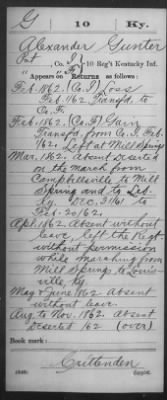 G 10 Ky.
Alexander Gunter
Pvt, Co. I, 10 Reg't Kentucky Inf.
Appears on Returns as follows:
Feb. 1862. (Co. I) Loss
Feb. 1862 Transf'd. to
Co. F.
Feb. 1862. (Co. F) Gain
Transf'd. from Co. I. Feb.
1862. Left at Mill Spring
Mar. 1862. Absent Deserted
on the march from
Campbellsville to Mill
Spring and to Leb.
Ky. Dec. 31/61 to
Feb. 20/62.
Apl. 1862. Absent without
leave. Left the Regt
without permission
while marching from
Mill Spring to Louis-
ville, Ky.
May & June 1862 Absent
without leave.
Aug. to Nov. 1862. Absent
Deserted '62 (over)
Book mark:
Crittenden
Copyist.